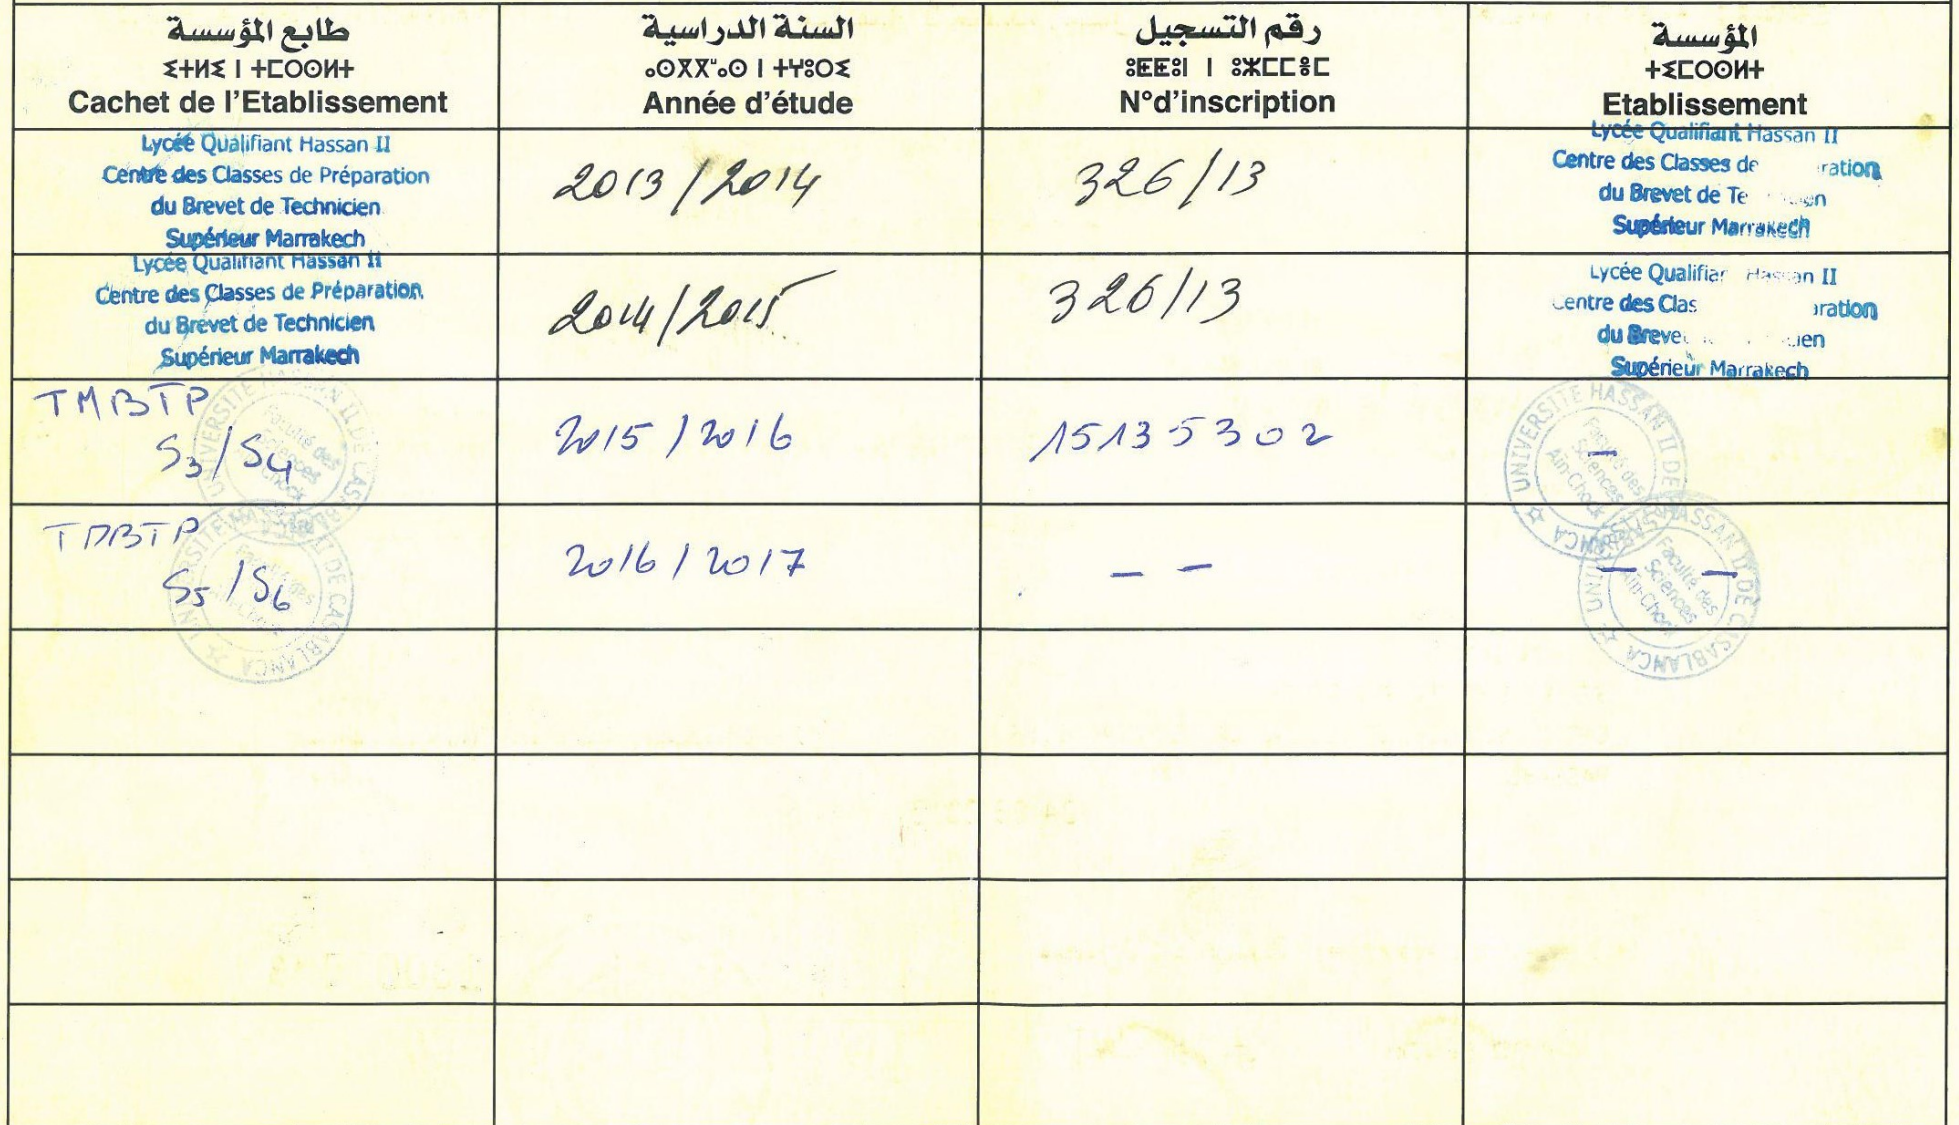 طابع المؤسسة
ⵉⵜⵍⵉ ⵏ ⵜⵎⵔⵙⵍⵜ
Cachet de l'Etablissement
السنة الدراسية
ⴰⵙⴳⴳⵯⴰⵙ ⵏ ⵜⵖⵓⵔⵉ
Année d'étude
رقم التسجيل
ⵓⵟⵟⵓⵏ ⵏ ⵓⵣⵎⵎⴻⵎ
N°d'inscription
المؤسسة
ⵜⵉⵎⵔⵙⵍⵜ
Etablissement
Lycée Qualifiant Hassan II
Centre des Classes de Préparation
du Brevet de Technicien
Supérieur Marrakech
2013/2014
326/13
Lycée Qualifiant Hassan II
Centre des Classes de ration
du Brevet de Te en
Supérieur Marrakech
Lycée Qualifiant Hassan II
Centre des Classes de Préparation
du Brevet de Technicien
Supérieur Marrakech
2014/2015
326/13
Lycée Qualifia Hassan II
Centre des Clas aration
du Breve ien
Supérieur Marrakech
TMBTP
S3/S4
UNIVERSITE HASSAN II DE CASABLANCA
Faculté des
Sciences
Ain-Chock
2015/2016
15135302
–
UNIVERSITE HASSAN II DE CASABLANCA
Faculté des
Sciences
Ain-Chock
TMBTP
S5/S6
UNIVERSITE HASSAN II DE CASABLANCA
2016/2017
– –
– –
UNIVERSITE HASSAN II DE CASABLANCA
Faculté des
Sciences
Ain-Chock